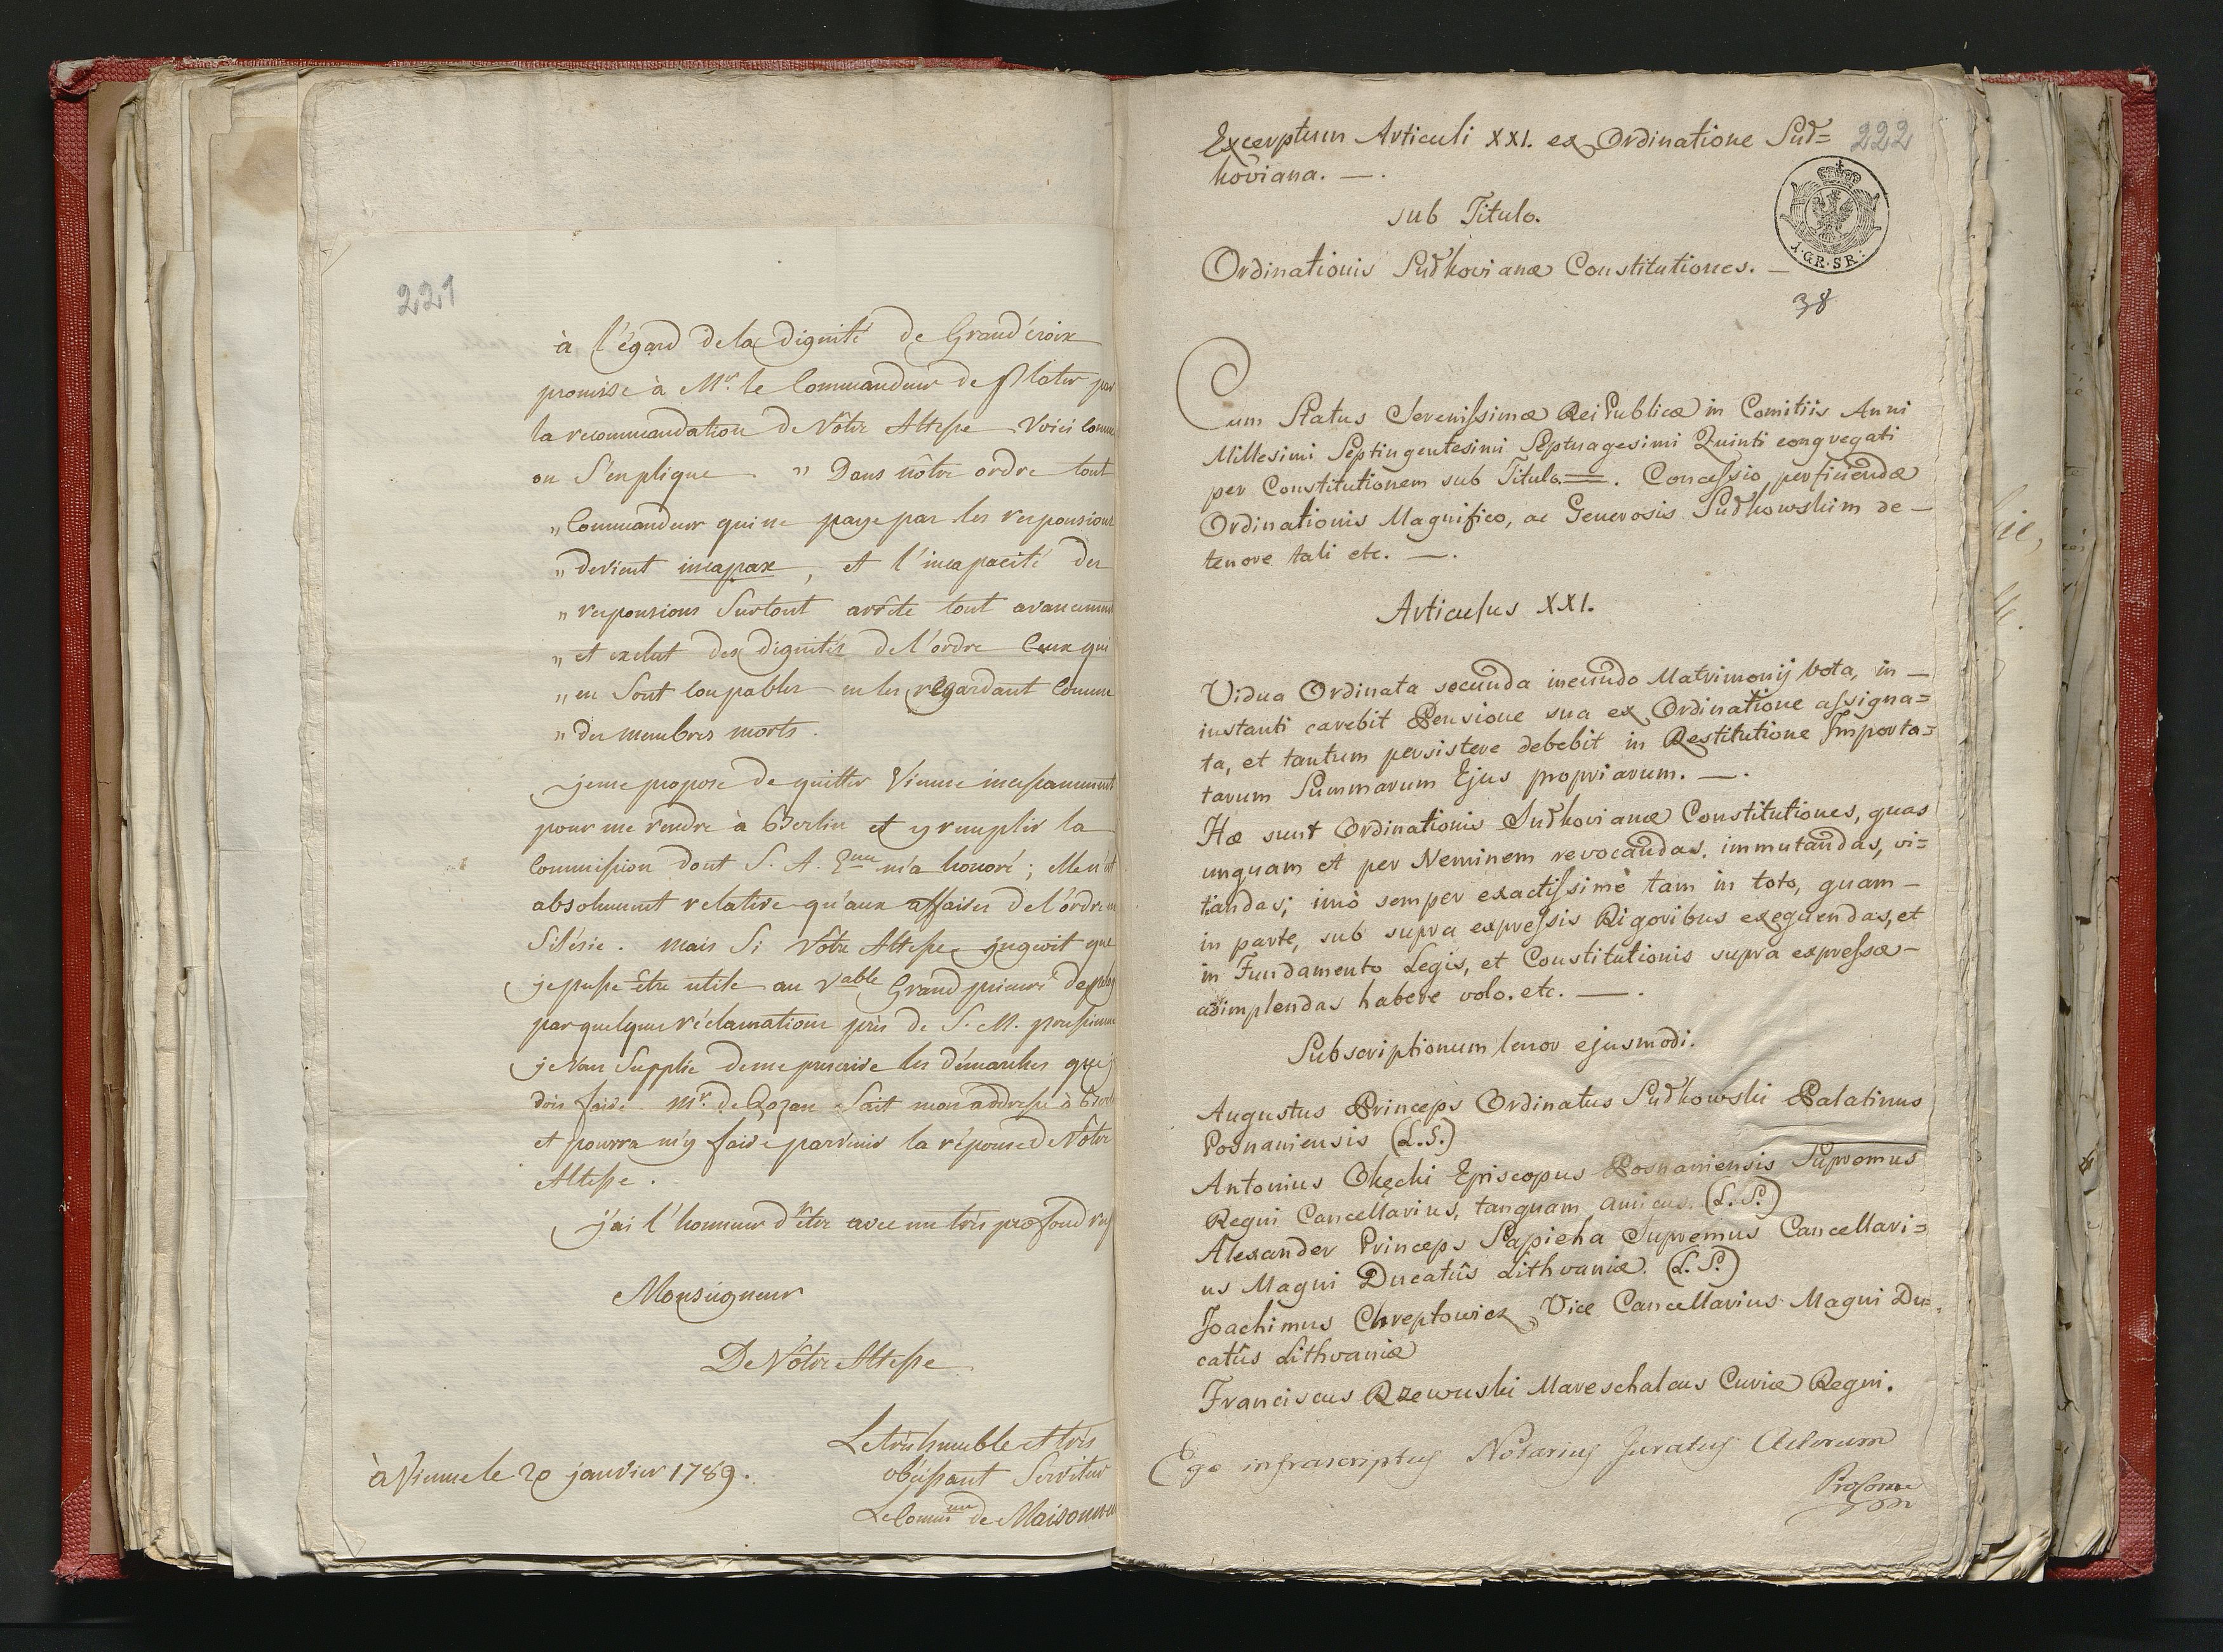 221
à l'égard de la dignité de Grand'croix
promise à Mr. le Commandeur de Plater par
la recommandation de Vôtre Altesse Voici comme
on s'explique " Dans nôtre ordre tout
" Commandeur qui ne paye pas les responsions
" devient incapax, et l'incapacité des
" responsions surtout arrête tout avancement
" et exclut des dignités de l'ordre Ceux qui
" en sont coupables en les regardant comme
" des membres morts.
je me propose de quitter Vienne incessamment
pour me rendre à Berlin et y remplir la
Commission dont S. A. Eme m'a honoré; Elle n'est
absolument relative qu'aux affaires de l'ordre en
Silésie. mais si Vôtre Altesse jugeoit que
je pusse être utile au Vable Grand prieuré de
par quelques réclamations près de S. M. prussienne
je Vous supplie de me prescrire les démarches que j
dois faire. Mr. de Rozan sait mon addresse à Berl
et pourra m'y faire parvenir la réponse de Vôtre
Altesse.
j'ai l'honneur d'être avec un très profond res
Monseigneur
De Vôtre Altesse
Le très humble et très
à Vienne le 20 janvier 1789. obéissant Serviteur
Le Commeur de Maisonneu
Excerptum Articuli XXI. ex Ordinatione Sud= 222
koviana. —.
sub Titulo.
1.GR.SR.
Ordinationis Sudkovianæ Constitutiones. —
38
Cum Status Serenissimæ ReiPublicæ in Comitiis Anni
Millesimi Septingentesimi Septuagesimi Quinti congregati
per Constitutionem sub Titulo =. Concessio perficiendæ
Ordinationis Magnifico, ac Generosis Sudkowskim de —
tenore tali etc. —.
Articulus XXI.
Vidua Ordinata secunda ineundo Matrimonij vota, in —
instanti carebit Pensione sua ex Ordinatione assigna=
ta, et tantum persistere debebit in Restitutione Importa=
tarum Summarum Ejus propriarum. —.
Hæ sunt Ordinationis Sudkovianæ Constitutiones, quas
unquam et per Neminem revocandas, immutandas, vi=
tiandas; imò semper exactissimè tam in toto, quam —
in parte, sub supra expressis Rigoribus exequendas, et
in Fundamento Legis, et Constitutionis supra expressæ —
adimplendas habere volo. etc. —.
Subscriptionum tenor ejusmodi.
Augustus Princeps Ordinatus Sudkowski Palatinus
Posnaniensis (L.S.)
Antonius Okęcki Episcopus Posnaniensis Supremus
Regni Cancellarius, tanquam amicus. (L.S.)
Alexander Princeps Sapieha Supremus Cancellari=
us Magni Ducatûs Lithvaniæ. (L.S.)
Joachimus Chreptowicz Vice Cancellarius Magni Du=
catûs Lithvaniæ
Franciscus Rzewuski Mareschalcus Curiæ Regni.
Ego infrascriptus Notarius Juratus Actorum